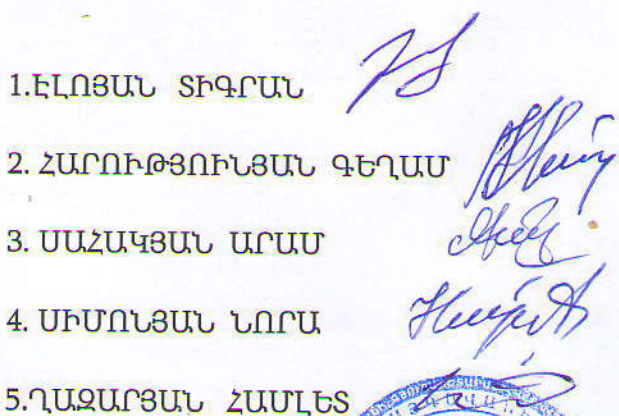 1.ԷԼՈՅԱՆ ՏԻԳՐԱՆ
2. ՀԱՐՈՒԹՅՈՒՆՅԱՆ ԳԵՂԱՄ
3. ՍԱՀԱԿՅԱՆ ԱՐԱՄ
4. ՍԻՄՈՆՅԱՆ ՆՈՐԱ
5.ՂԱԶԱՐՅԱՆ ՀԱՄԼԵՏ